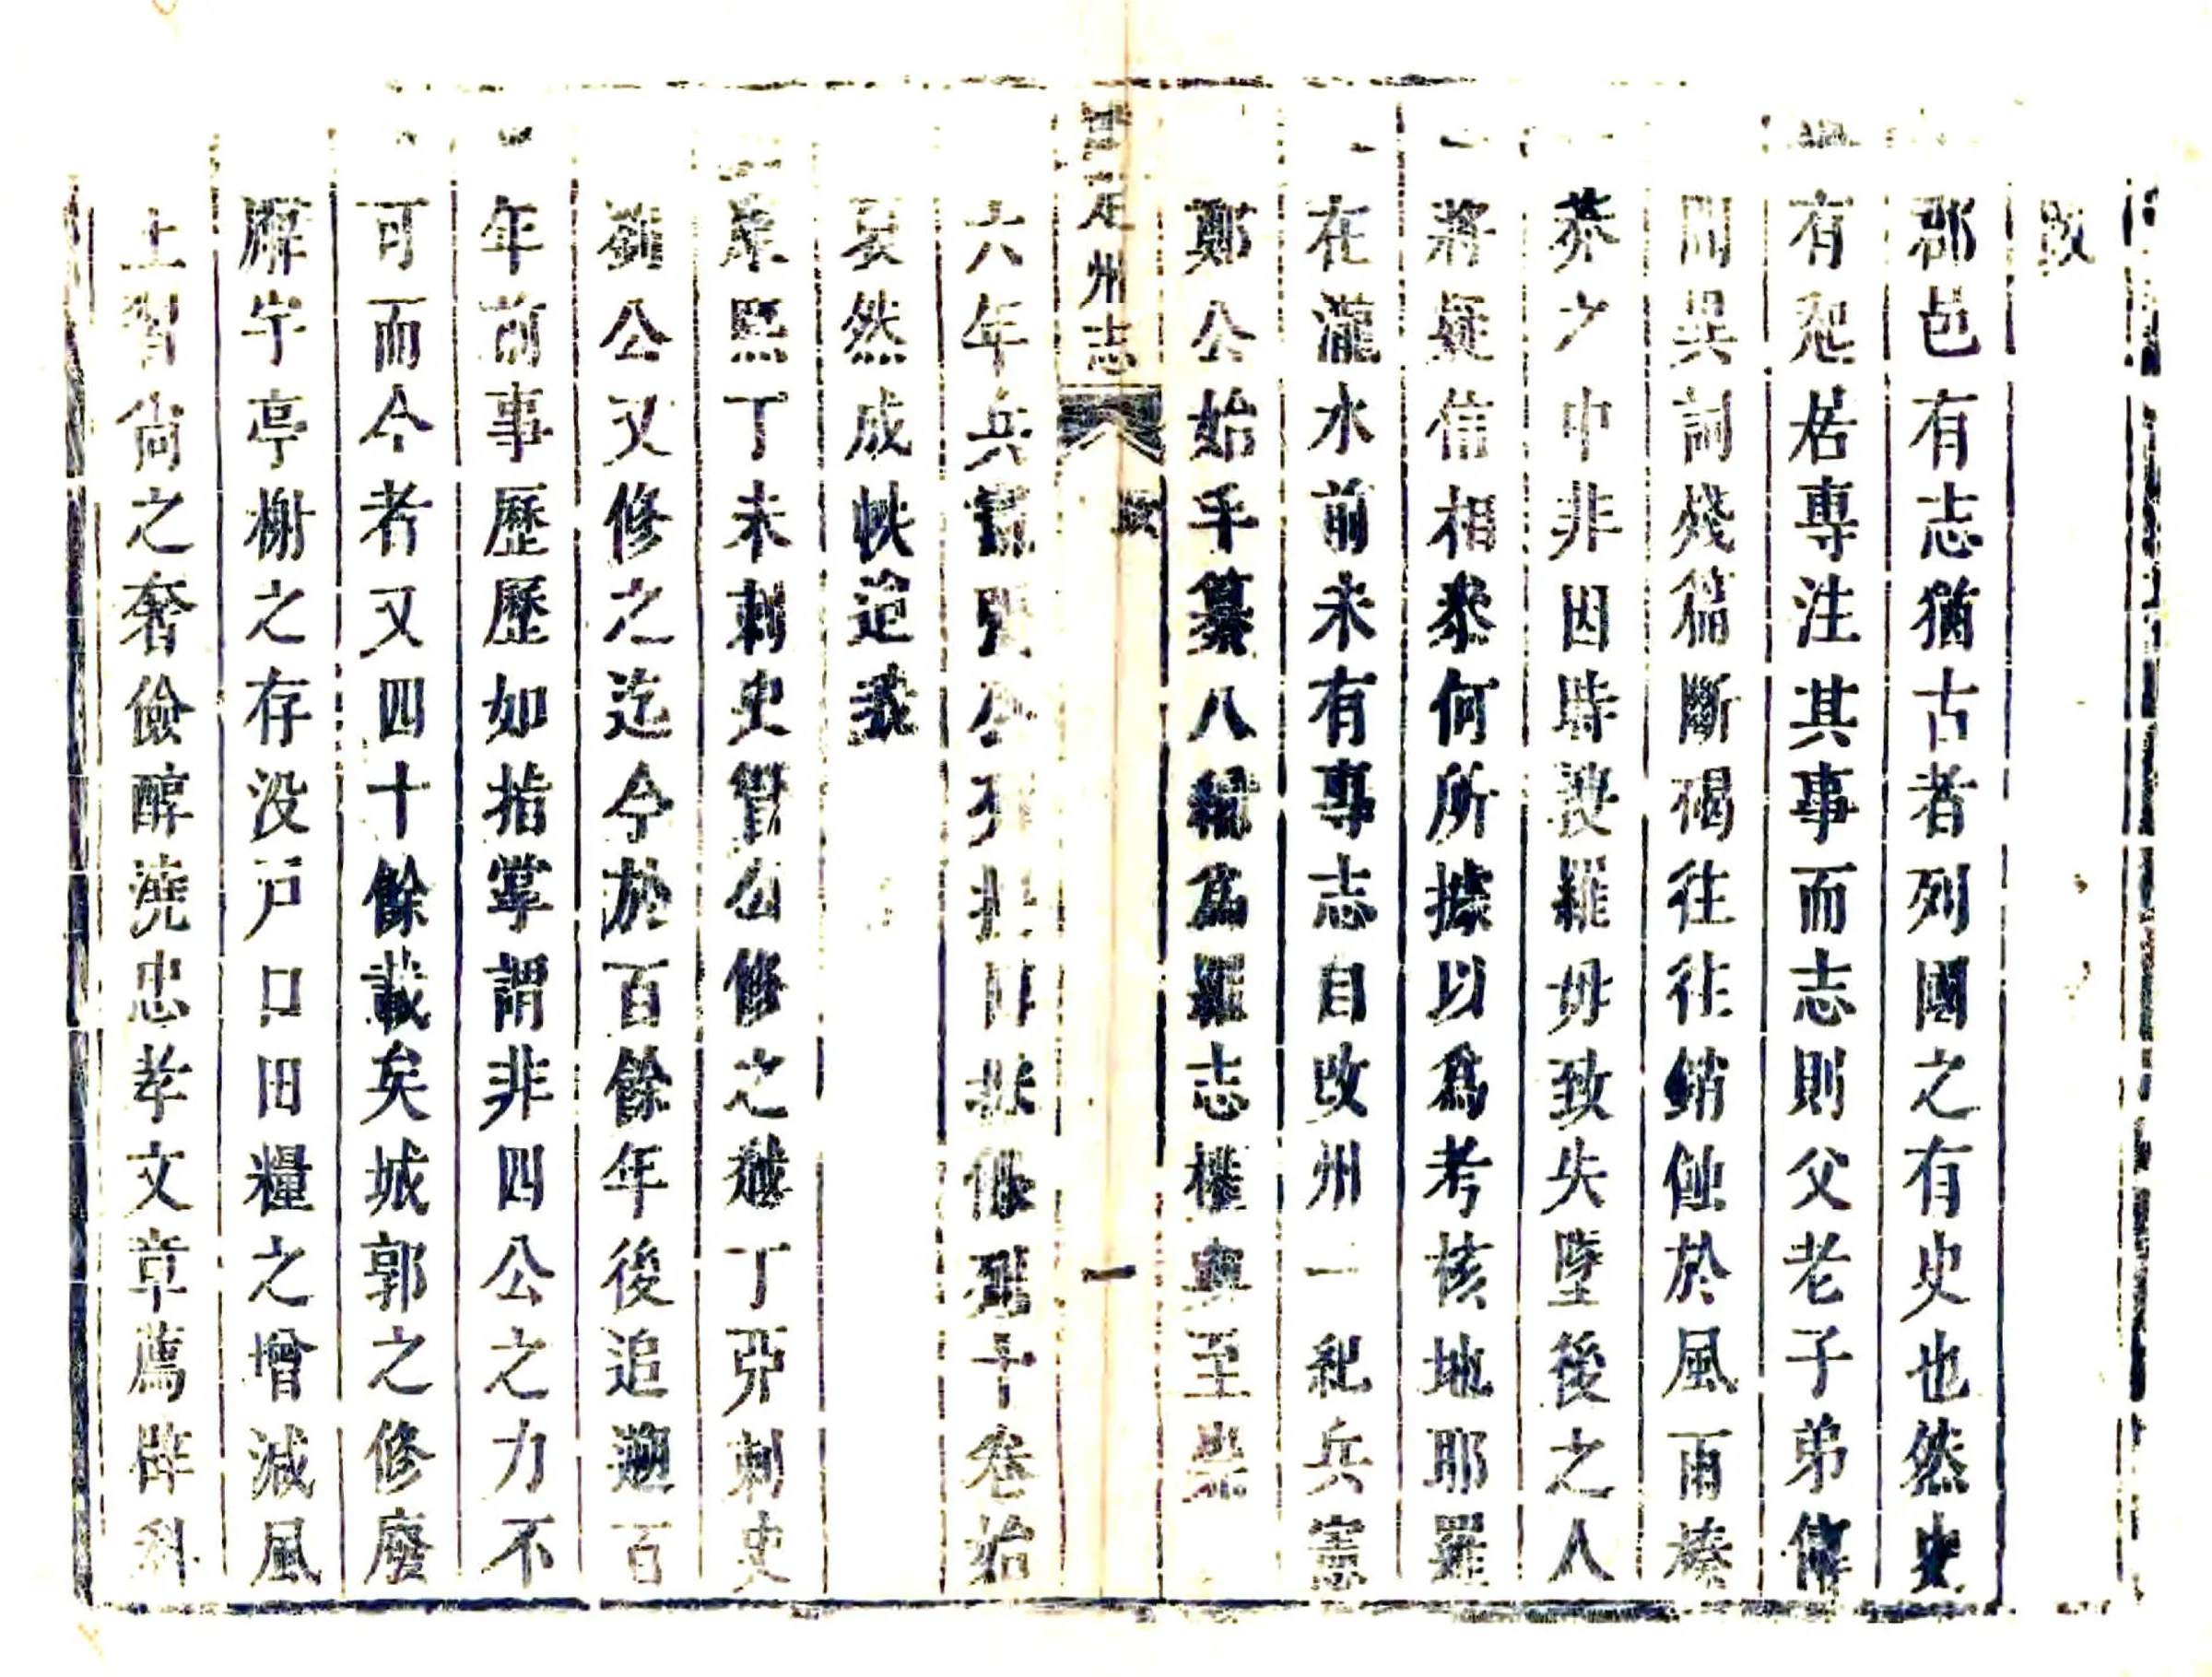 跋
郡邑有志猶古者列國之有史也然史
有᠎若專注其事而志則父老子弟傳
聞異詞殘篇斷碣徃徃銷蝕於風雨榛
莽之中非因時搜羅毋致失墜後之人
將疑信相叅何所據以爲考核地耶羅
在瀧水前未有專志自改州一紀兵憲
鄭公始手纂八編爲羅志權輿至崇
六年兵憲張公
裒然成帙迨我
康熙丁未刺史公修之越丁亥刺史
劉公又修之迄今於百餘年後追遡百
年前事歷歷如指掌謂非四公之力不
可而今者又四十餘載矣城郭之修廢
廨宇亭榭之存没戸口田糧之增減風
土習尚之奢儉醇澆忠孝文章薦辟科
定州志 跋 一